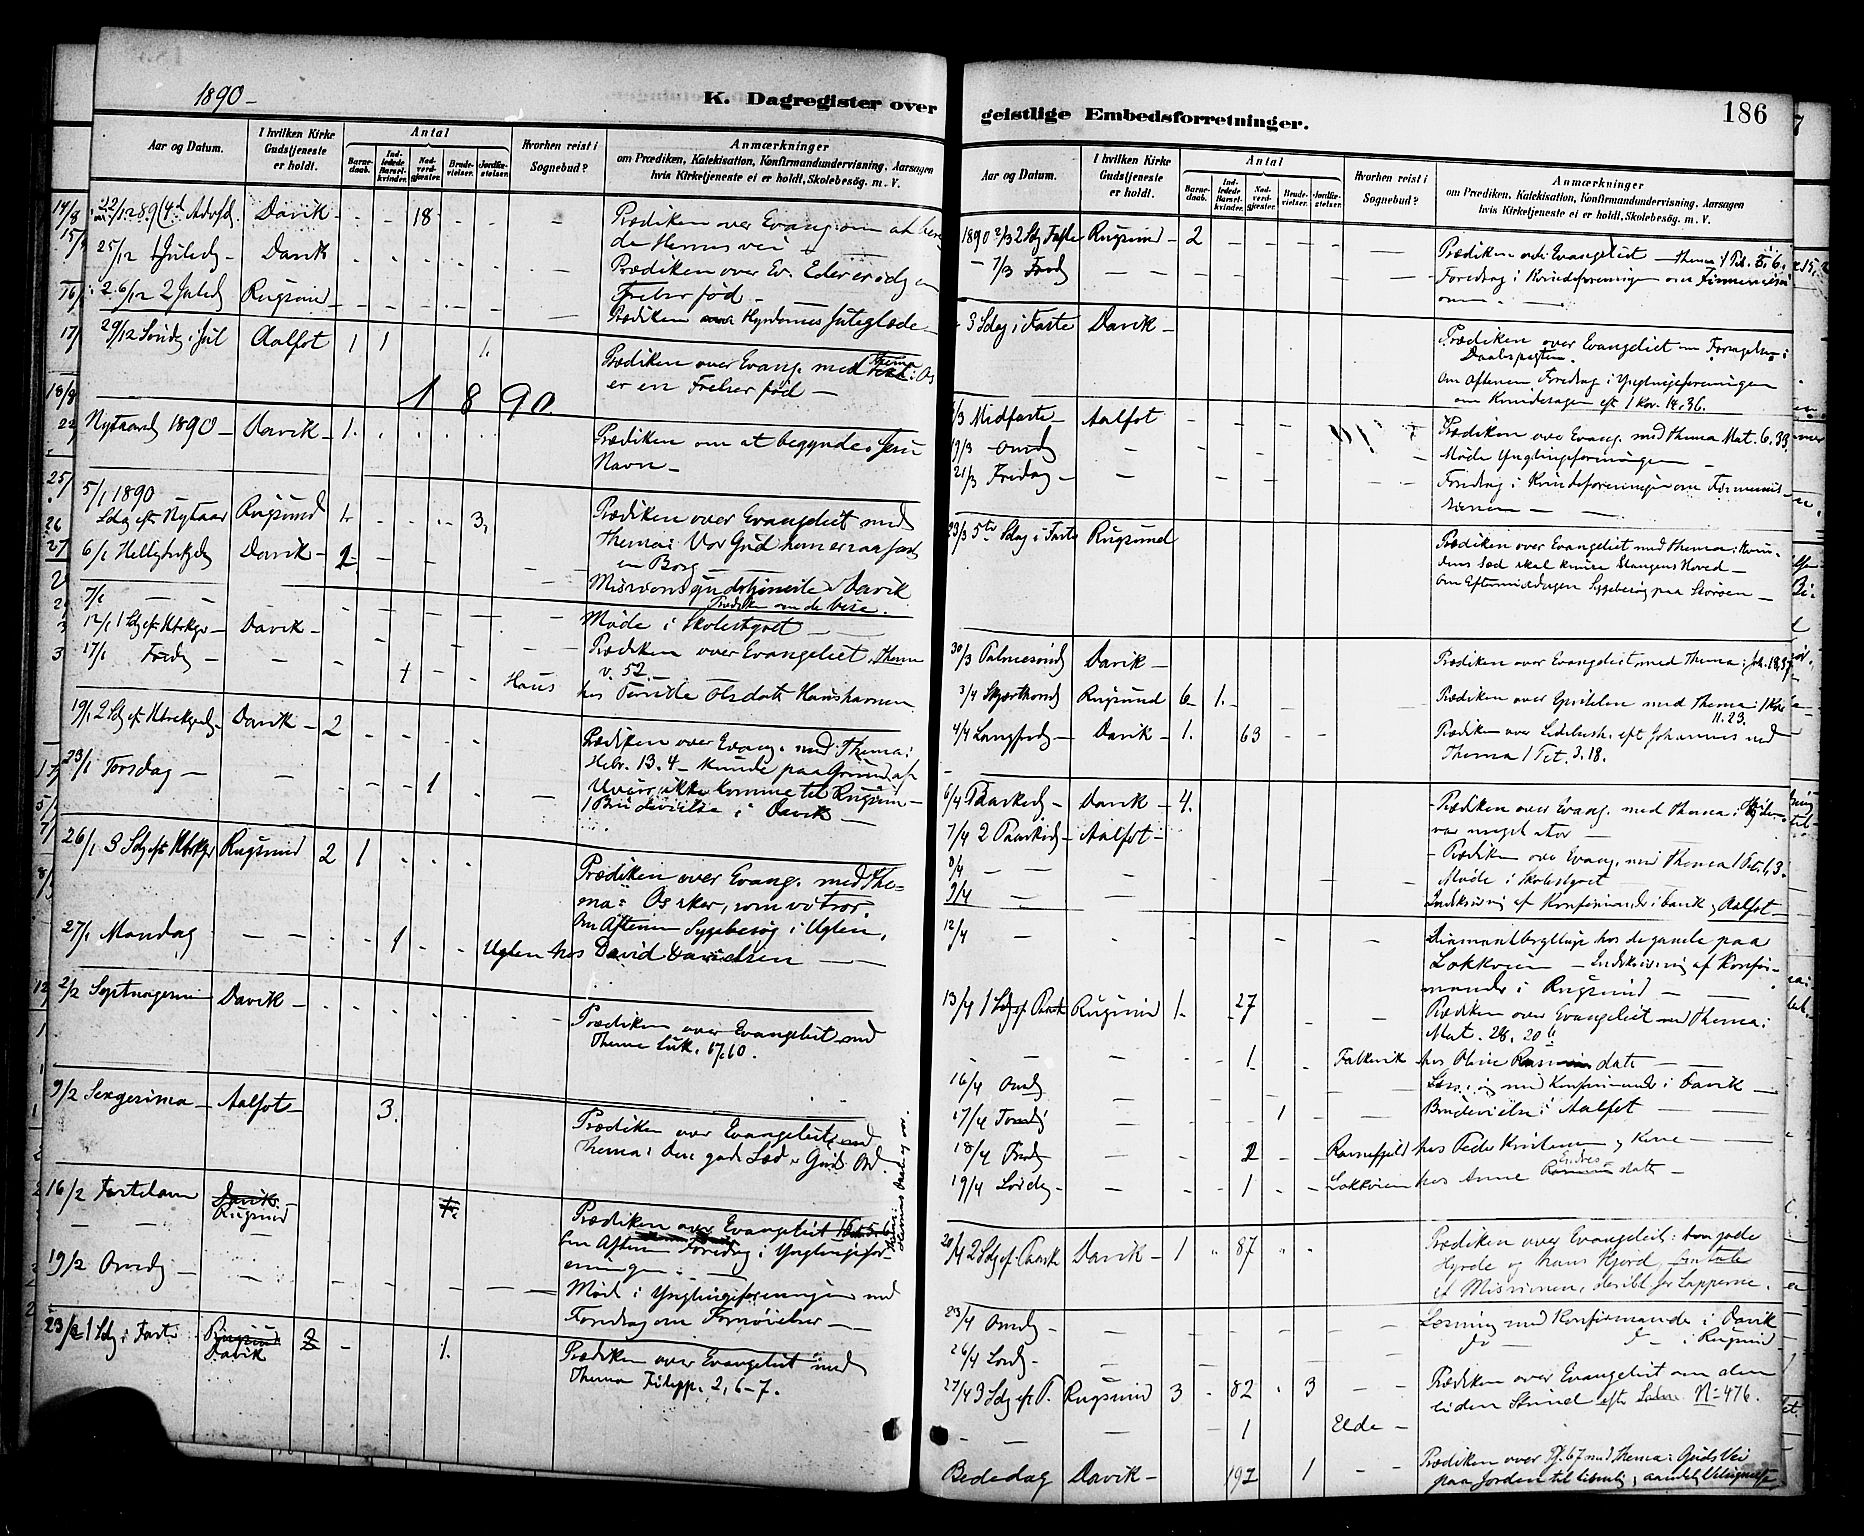 1890 –
K. Dagregister over
Aar og Datum.
I hvilken Kirke Gudstjeneste er holdt.
Antal
Barne-daab.
Ind-ledede Barsel-kvinder.
Nad-verd-gjæster.
Brude-vielser.
Jordfæ-stelser.
Hvorhen reist i Sognebud?
Anmærkninger
om Prædiken, Katekisation, Konfirmandundervisning, Aarsagen
hvis Kirketjeneste ei er holdt, Skolebesøg. m. V.
22/12 89 (4d Advsd Davik – 18 Prædiken over Evang. om at bere
de Herrens vei
25/12 1 Juledg – Davik Prædiken over Ev. Eder er idag en
Frelser fød –
26/12 2 Juledg Rugsund Prædiken Hyrdernes Juleglæde –
29/12 Søndg i Jul Aalfot 1 1 1. Prædiken over Evang. med Thema: Os
er en Frelser fød –
1 8 90
Nytaarsdg 1890 – Davik – 1. Prædiken om at begynde i Jesu
Navn –
5/1 1890
Sdg eft Nytaar Rugsund 1. 3, Prædiken over Evangeliet med
Thema: Vor Gud han er saa fast
en Borg –
6/1 Hellig3kgdg Davik – 2 Missionsgudstjeneste i Davik
Prædiken om de vise.
7/1 — — Møde i Skolestyret —
12/1 1 Sdg eft H3kgr – Davik – Prædiken over Evangeliet, Thema
v. 52. –
17/1 Fredg – – 1 Haus hos Olsdatt Haushavnen
19/1 2 Sdg eft H3kgdg – Davik – 2 Prædiken over Evang. med Thema:
Hebr. 13.4 – kunde paa Grund af
Uveir ikke komme til Rugsun –
23/1 Torsdag – — 1 — 1 Brudevielse i Davik —
26/1 3 Sdg eft H3kgr Rugsund 2 1 Prædiken over Evang. med The=
ma: Os sker, som vi tror.
Om Aftenen Sygebesøg i Uglen,
27/1 Mandag — — 1 Uglen hos David Davidsen — —
2/2 Septuagesima Davik – Prædiken over Evangeliet med
Thema Luk. 17,10.
9/2 Sexgesima – Aalfot – 3. Prædiken over Evangeliet med
Thema: Den gode Sæd er Guds Ord.
16/2 Fastelavn Davik Rugsund Prædiken over Evangeliet
Om Aftenen Foredrag i Ynglingefor-
eningen. –
19/2 Onsdg – — Møde i Ynglingeforeningen med
Foredrag om Fornøielser —
23/2 1 Sdg i Faste Rugsund Davik 2 1. Prædiken over Evangeliet med
Thema Filipp. 2, 6–7.
186
geistlige Embedsforretninger.
Aar og Datum.
I hvilken Kirke Gudstjeneste er holdt.
Antal
Barne-daab.
Ind-ledede Barsel-kvinder.
Nad-verd-gjæster.
Brude-vielser.
Jordfæ-stelser.
Hvorhen reist i Sognebud?
Anmærkninger
om Prædiken, Katekisation, Konfirmandundervisning, Aarsagen
hvis Kirketjeneste ei er holdt, Skolebesøg. m. V.
1890 2/3 2 Sdg Faste Rugsund – 2 Prædiken over Evangeliet – Thema 1 Pet. 5. 6.
– 7/3 Fredg — Foredrag i Kvindeforeningen om Finnemissi
onen —
3 Sdag i Faste Davik – Prædiken over Evangeliet om Forsagelsen i
Daabspagten.
Om Aftenen Foredrag i Ynglingeforeningen
om Kvindesagen eft 1 Kor. 14,36.
/3 Midfaste – Aalfot – Prædiken over Evang. med Thema Mat. 6. 33.
19/3 – Onsdg — Møde Ynglingeforeningen –
21/3 Fredag – — Foredrag i Kvindeforeningen om Finnemis-
sionen — —
23/3 5te Sdag i Faste Rugsund Prædiken over Evangeliet med Thema: Kvin-
dens Sæd skal knuse Slangens Hoved –
Om Eftermiddagen Sygebesøg paa —
30/3 Palmesøndg Davik – Prædiken over Evangeliet med Thema: Joh. 18,37
3/4 Skjærthorsdg Rugsund 6 1. Prædiken over Epistelen med Thema: 1 Kor
11. 23.
4/4 Langfredg – Davik – 1. 63 Prædiken over Lidelseshist. eft Johannes med
Thema 1 Pet. 3.18.
6/4 Paaskedg – Davik – 4. – Prædiken over Evang. med Thema:
var meget stor —
7/4 2 Paaskedg – Aalfot – – Prædiken over Evang. med Thema 1 Pet. 1,3.
8/4 — Møde i Skolestyret —
9/4 — Indskrivning af Konfirmander i Davik og Aalfot –
12/4 — Diamantbryllup hos de gamle paa
Lokkvien — Indskrivning af Konfir-
mander i Rugsund – —
13/4 1 Sdg ef Paaske Rugsund 1. 27 Prædiken over Evangeliet med Thema:
Mat. 28. 20 b
— 1. Falkevik hos Oline datt. —
16/4 Onsdg — Læsning med Konfirmander i Davik –
17/4 Torsdg — 1 Brudevielse i Aalfot — —
18/4 Fredg — 2 Ravnefjeld hos Peder Kristensen og Kone —
19/4 Lørdg — 1 Lokkvien hos Anne Endres datt –
20/4 2 Sdg ef Paaske Davik – 1 87 Prædiken over Evangeliet: den gode
Hyrde og hans Hjord,
af Missionen, for Lapperne.
23/4 Onsdg – — Læsning med Konfirmander i Davik
26/4 Lørdg – — Do — D – i Rugsund –
27/4 3 Sdg eft P. Rugsund 3 82 3 Prædiken over Evangeliet om den
liden Stund efter Salme No 476.
— 1 Elde –
Bededag Davik – 192 1 Prædiken over Ps. 67 med Thema: Guds Vei
paa Jorden til timelig, aandelig Velsignelse
Thema: Herrens Daab og vor.